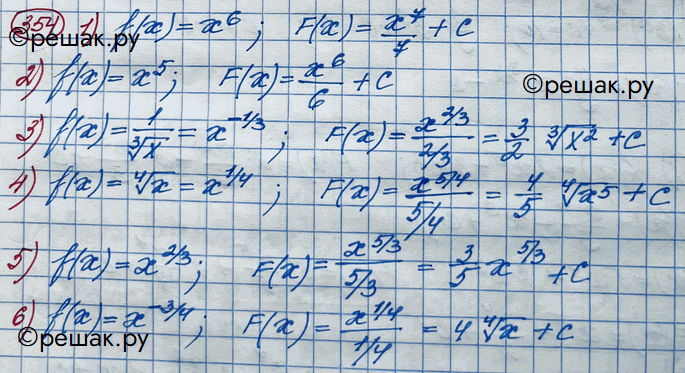 354) 1) f(x) = x⁶; F(x) = x⁷/7 + C
©решак.ру
2) f(x) = x⁵; F(x) = x⁶/6 + C
©решак.ру
3) f(x) = 1/∛x = x^(-1/3); F(x) = x^(2/3)/(2/3) = 3/2 ∛x² + C
4) f(x) = ∜x = x^(1/4); F(x) = x^(5/4)/(5/4) = 4/5 ∜x⁵ + C
5) f(x) = x^(2/3); F(x) = x^(5/3)/(5/3) = 3/5 x^(5/3) + C
6) f(x) = x^(-3/4); F(x) = x^(1/4)/(1/4) = 4 ∜x + C
©решак.ру
©решак.ру